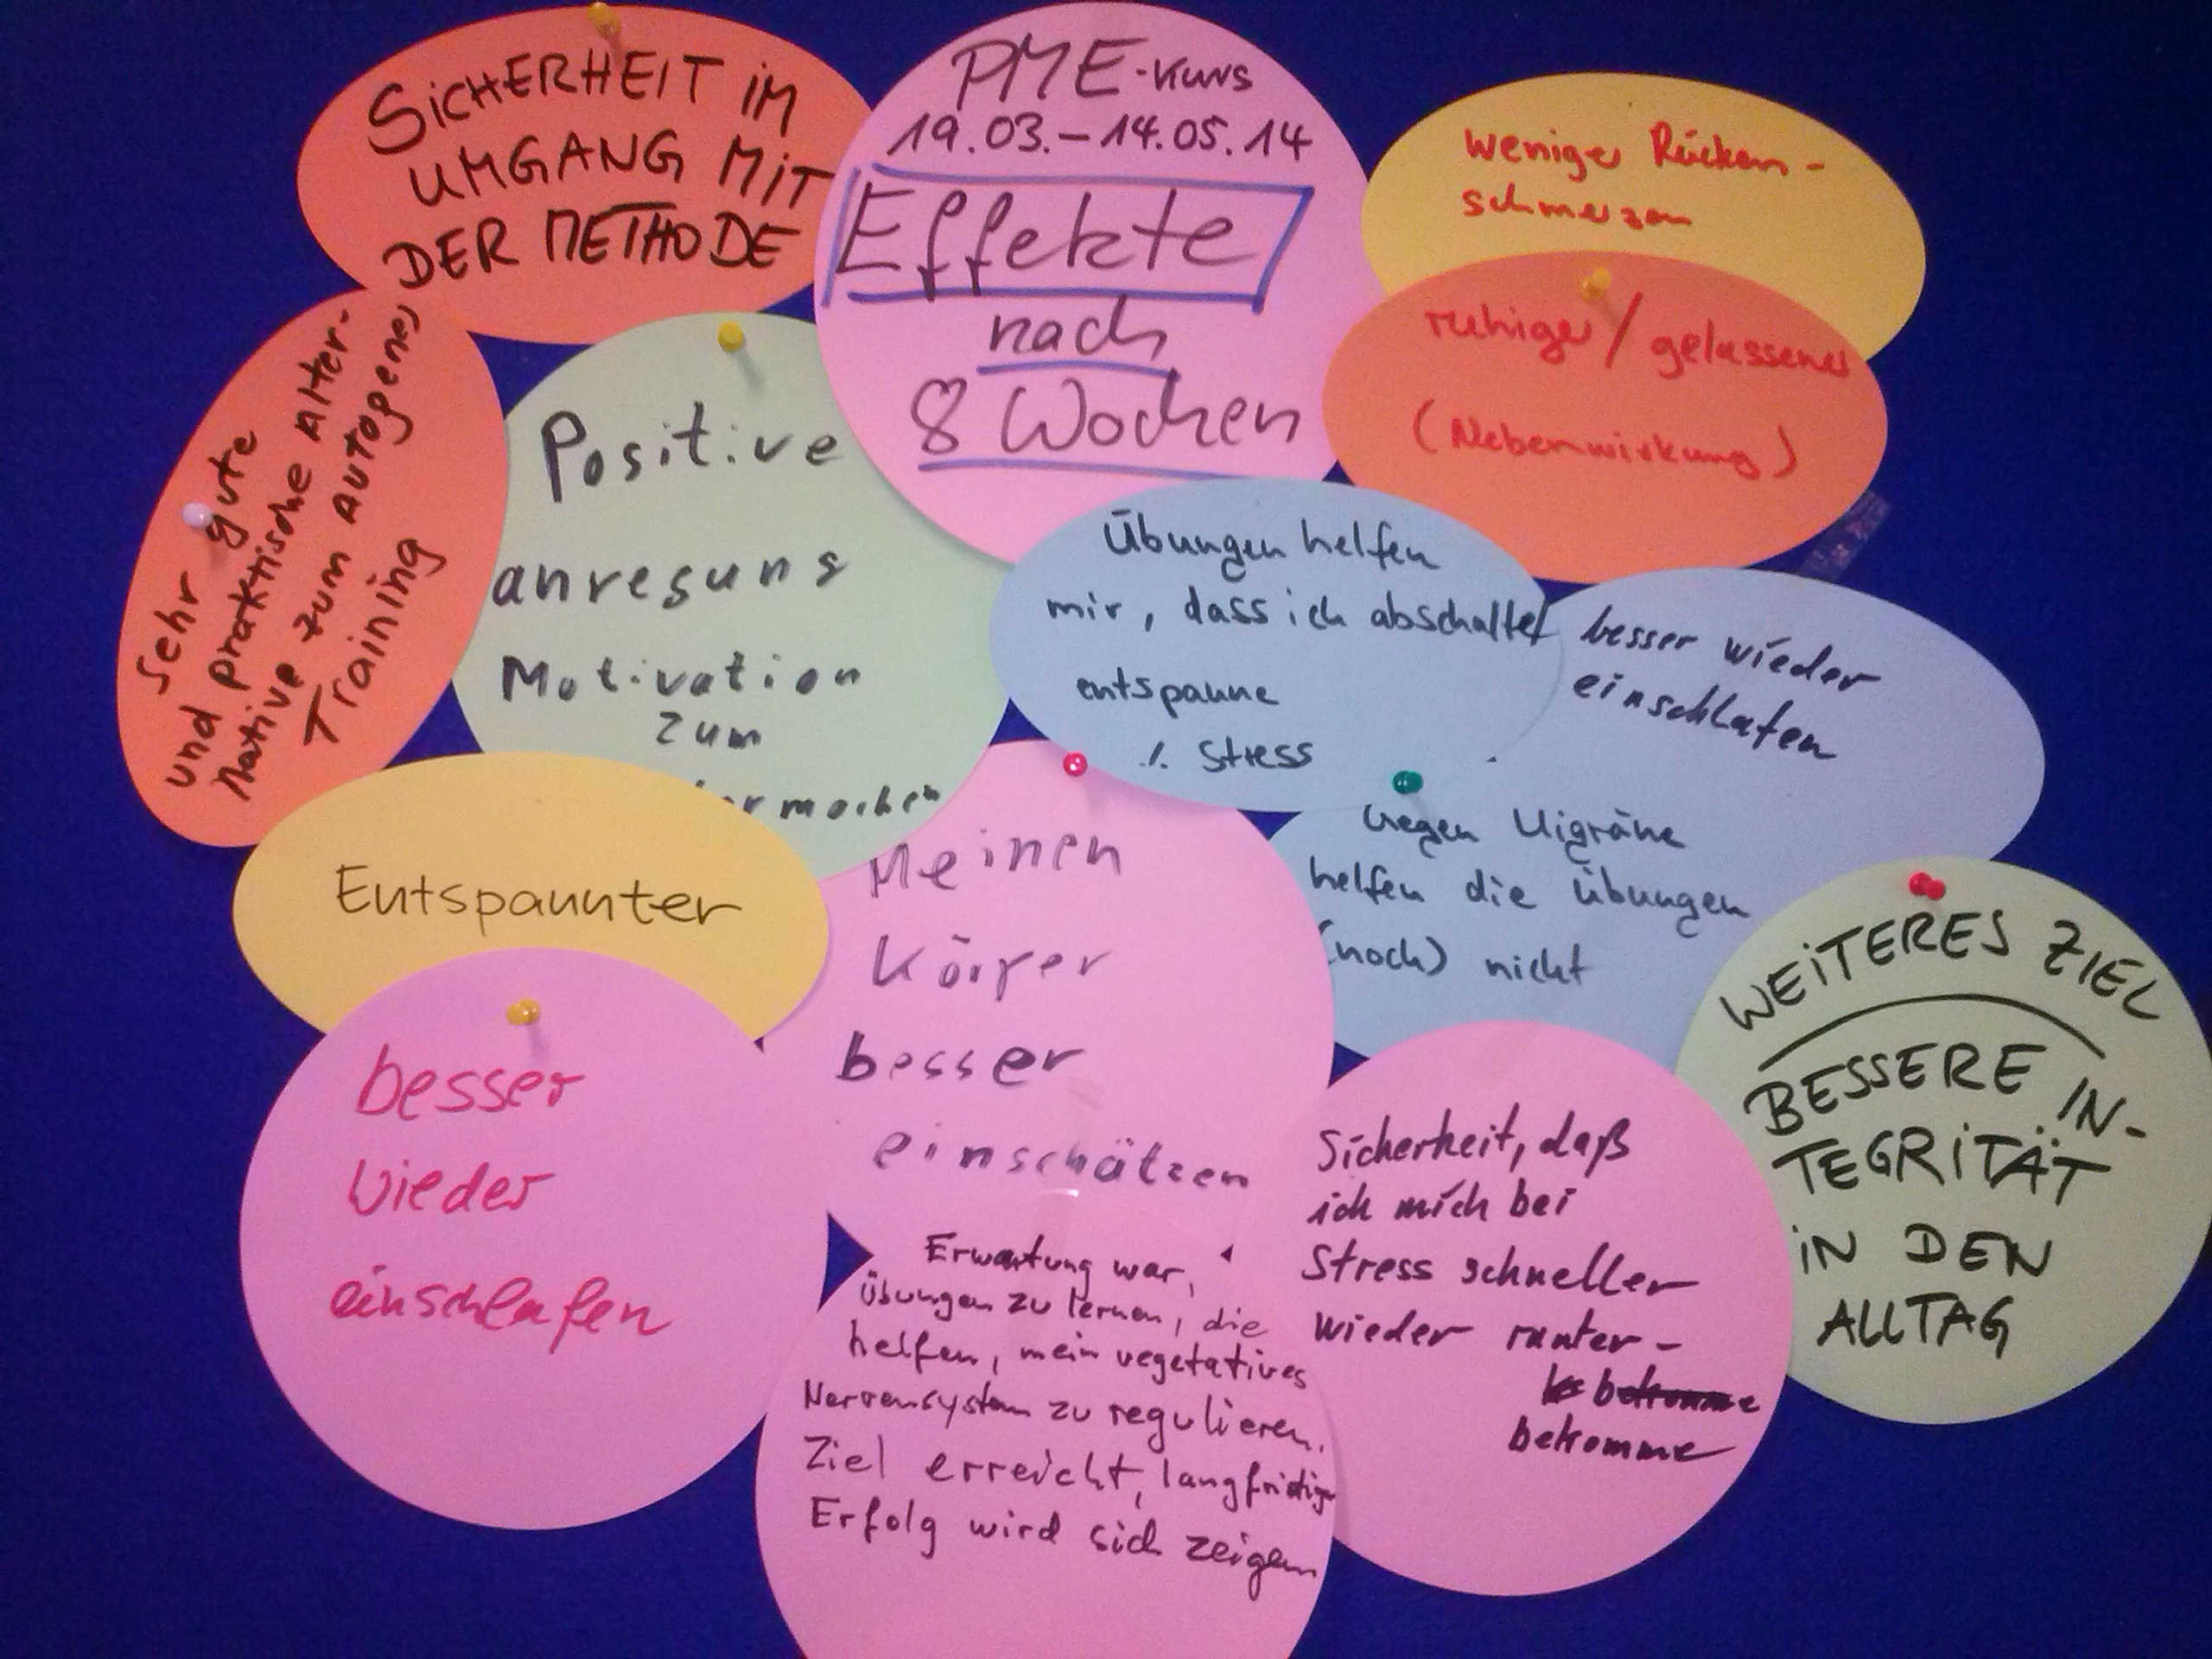 SICHERHEIT IM
UMGANG MIT
DER METHODE
PME-Kurs
19.03.-14.05.14
Effekte
nach
8 Wochen
weniger Rücken-
schmerzen
ruhiger / gelassener
(Nebenwirkung)
Sehr gute
und praktische Alter-
native zum autogenes
Training
Positive
anregung
Motivation
zum
Übungen helfen
mir, dass ich abschalte/
entspanne
./. Stress
besser wieder
einschlafen
Gegen Migräne
helfen die Übungen
(noch) nicht
Entspannter
besser
wieder
einschlafen
Meinen
Körper
besser
einschätzen
WEITERES ZIEL
BESSERE IN-
TEGRITÄT
IN DEN
ALLTAG
Erwartung war,
Übungen zu lernen, die
helfen, mein vegetatives
Nervensystem zu regulieren.
Ziel erreicht, langfristiger
Erfolg wird sich zeigen
Sicherheit, daß
ich mich bei
Stress schneller
wieder runter-
bekomme
bekomme